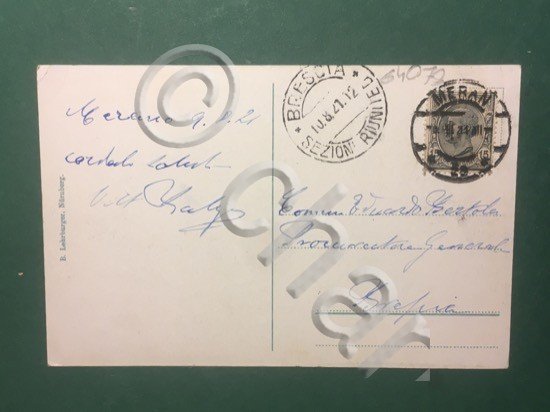 Merano 9.8.21
cordiali saluti
B. Lehrburger, Nürnberg.
BRESCIA
10.8.21.12
SEZIONI RIUNITE
64072
MERAN
Comm Eduardo Bertola
Procuratore Generale
Brescia
© char